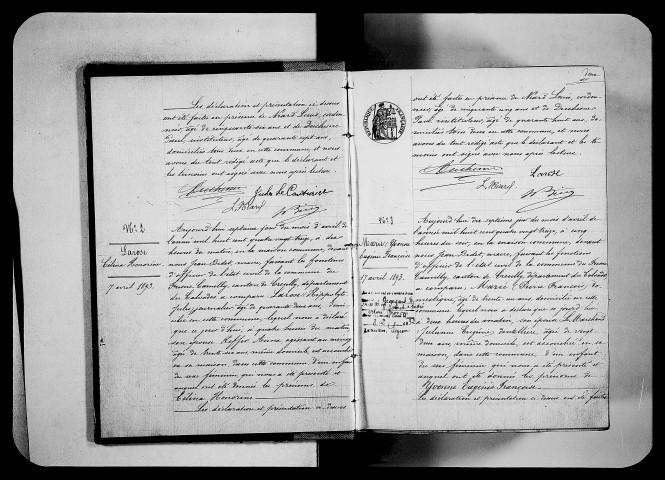 Les déclaration et présentation ci dessus
ont été faites en présence de Néard Louis, cordon
nier, âgé de cinquante six ans et de Duchemin
Paul, instituteur, âgé de quarante sept ans,
domiciliés tous deux en cette commune, et nous
avons du tout rédigé acte que le déclarant et
les témoins ont signé avec nous après lecture.
Duchemin
L. Néard
N° 2
Larose
Célina Honorine
7 avril 1893.
Aujourd'hui septième jour du mois d'avril de
l'an mil huit cent quatre vingt treize, à dix
heures du matin, en la maison commune, devant
nous Jean Bidot, maire, faisant les fonctions
d'officier de l'état civil de la commune de
Fresné Camilly, canton de Creully, département
du Calvados a comparu Larose Hippolyte
Jules, journalier, âgé de quarante deux ans, domi
cilié en cette commune, lequel nous a déclaré
que ce jour d'hui, à quatre heures du matin,
son épouse
âgée de trente six ans, même domicile, est accouchée
en sa maison, dans cette commune, d'un enfant
du sexe féminin, qui nous a été présenté et
auquel ont été donnés les prénoms de
Célina Honorine
Les déclaration et présentation ci dessus
ont été faites en présence de Néard Louis, cordon
nier, âgé de cinquante six ans et de Duchemin
Paul, instituteur, âgé de quarante huit ans, do
miciliés tous deux en cette commune, et nous
avons du tout rédigé acte que le déclarant et les té
moins ont signé avec nous après lecture.
Duchemin
Larose
L. Néard
N° 3
Marie Yvonne
Eugénie Françoise
17 avril 1893.
Aujourd'hui dix septième jour du mois d'avril de
l'année mil huit cent quatre vingt treize, à cinq
heures du soir, en la maison commune, devant
nous Jean Bidot, maire, faisant les fonctions
d'officier de l'état civil de la commune de Fresné
Camilly, canton de Creully, département du Calvados
a comparu, Marie Pierre François, do
mestique, âgé de trente un ans, domicilié en cette
commune, lequel nous a déclaré que ce jourd'hui
à deux heures du matin, son épouse Le Marchand
Julienne Eugénie, dentellière, âgée de vingt
deux ans, même domicile, est accouchée en sa
maison, dans cette commune, d'un enfant
du sexe féminin qui nous a été présenté et
auquel ont été donnés les prénoms de
Yvonne Eugénie Françoise
Les déclaration et présentation ci dessus ont été faites